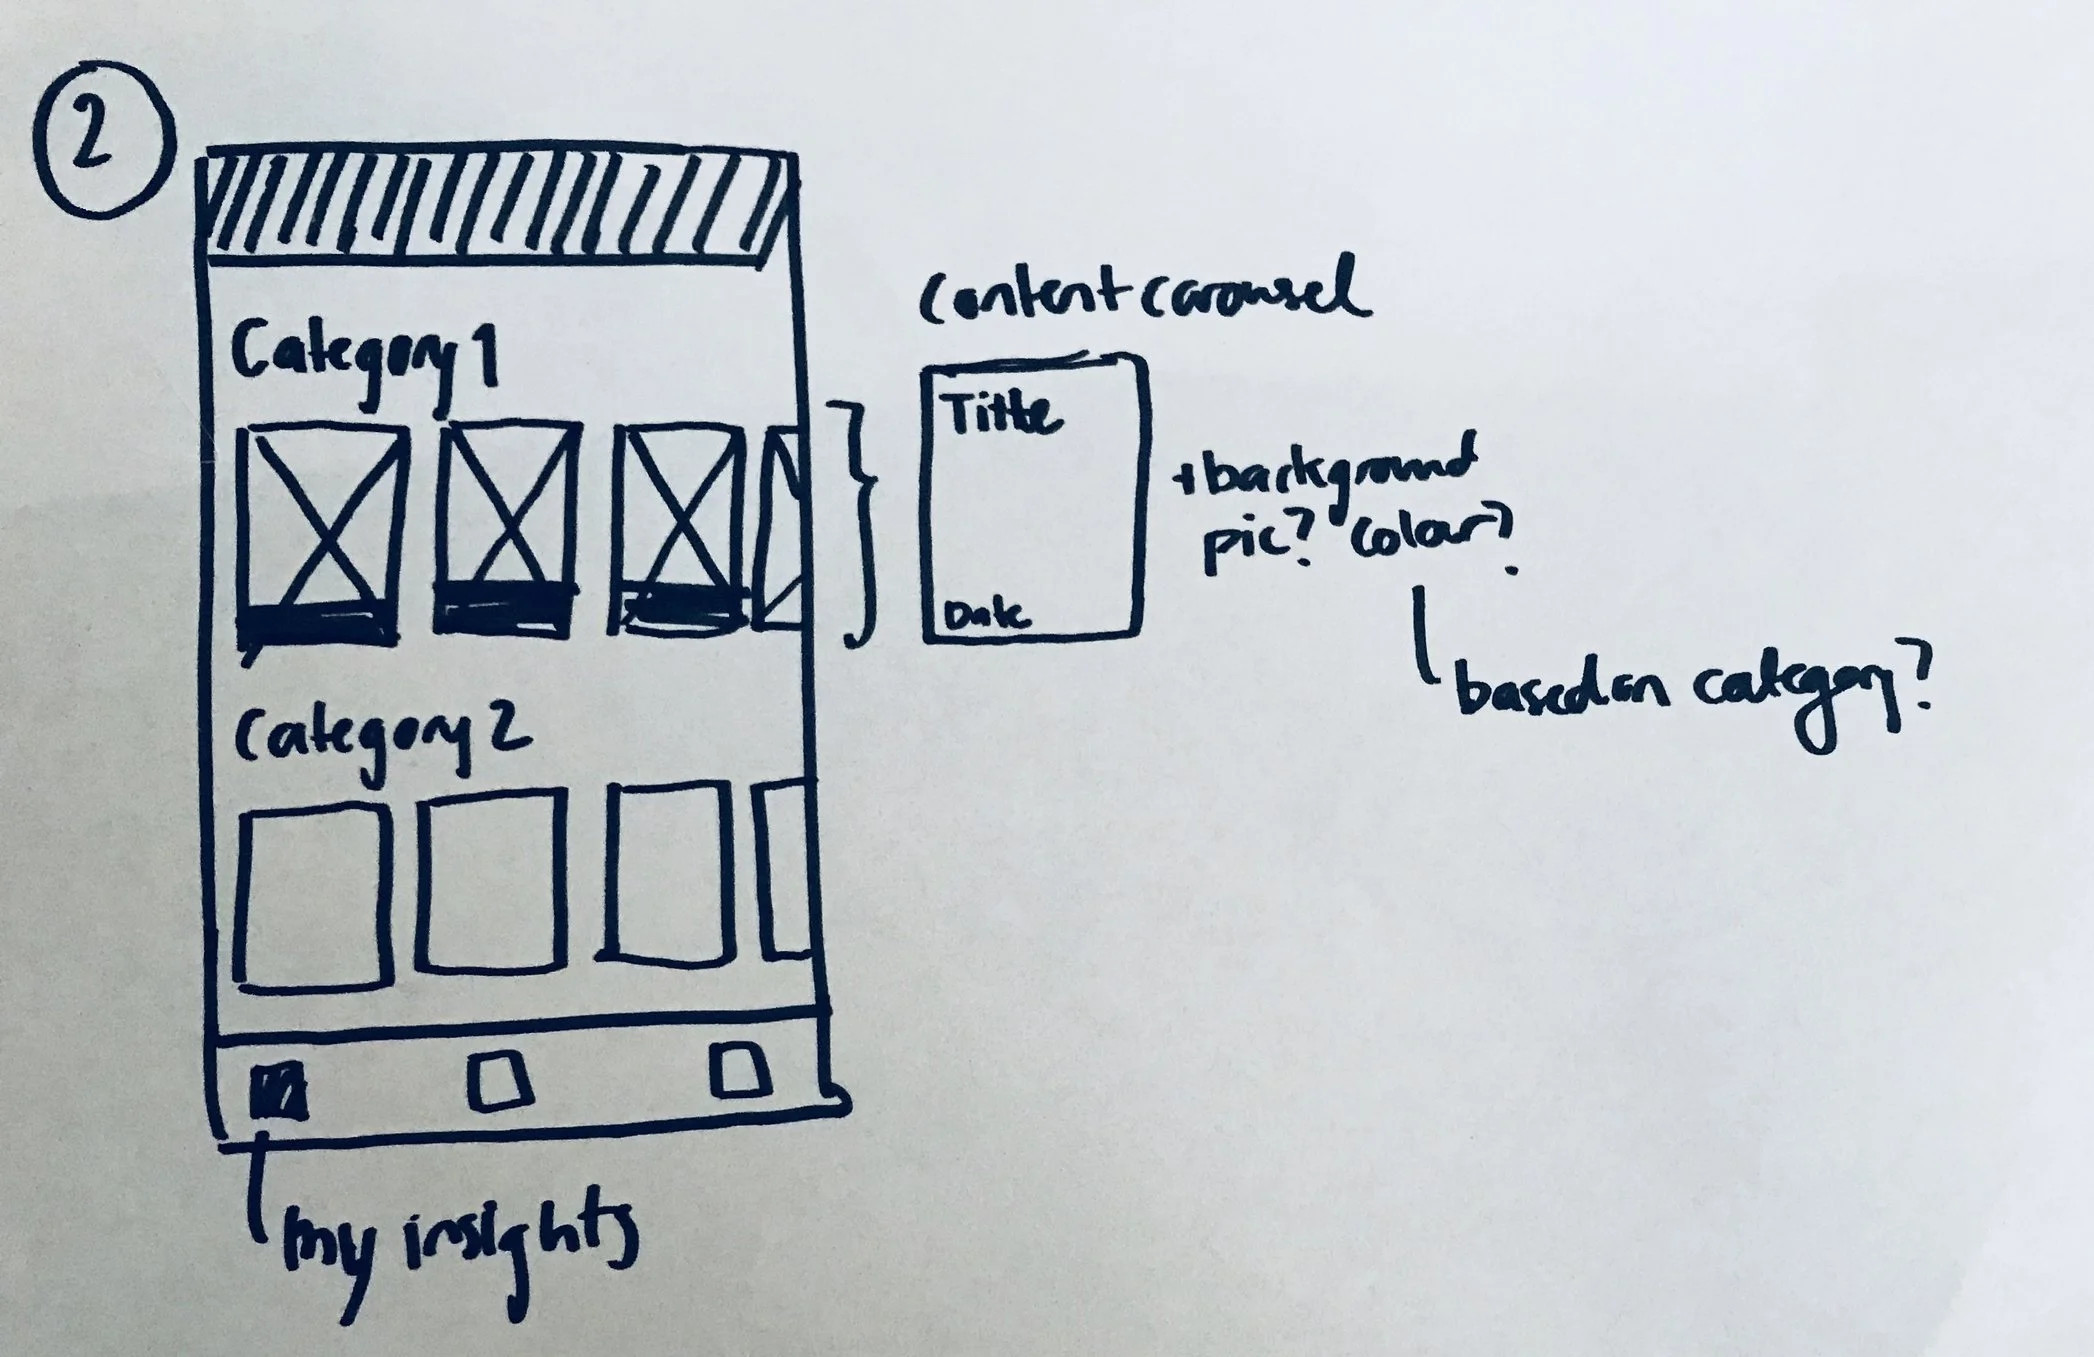 2
Category 1
Content carousel
Title
Date
+ background
pic? colour?
based on category?
Category 2
my insights